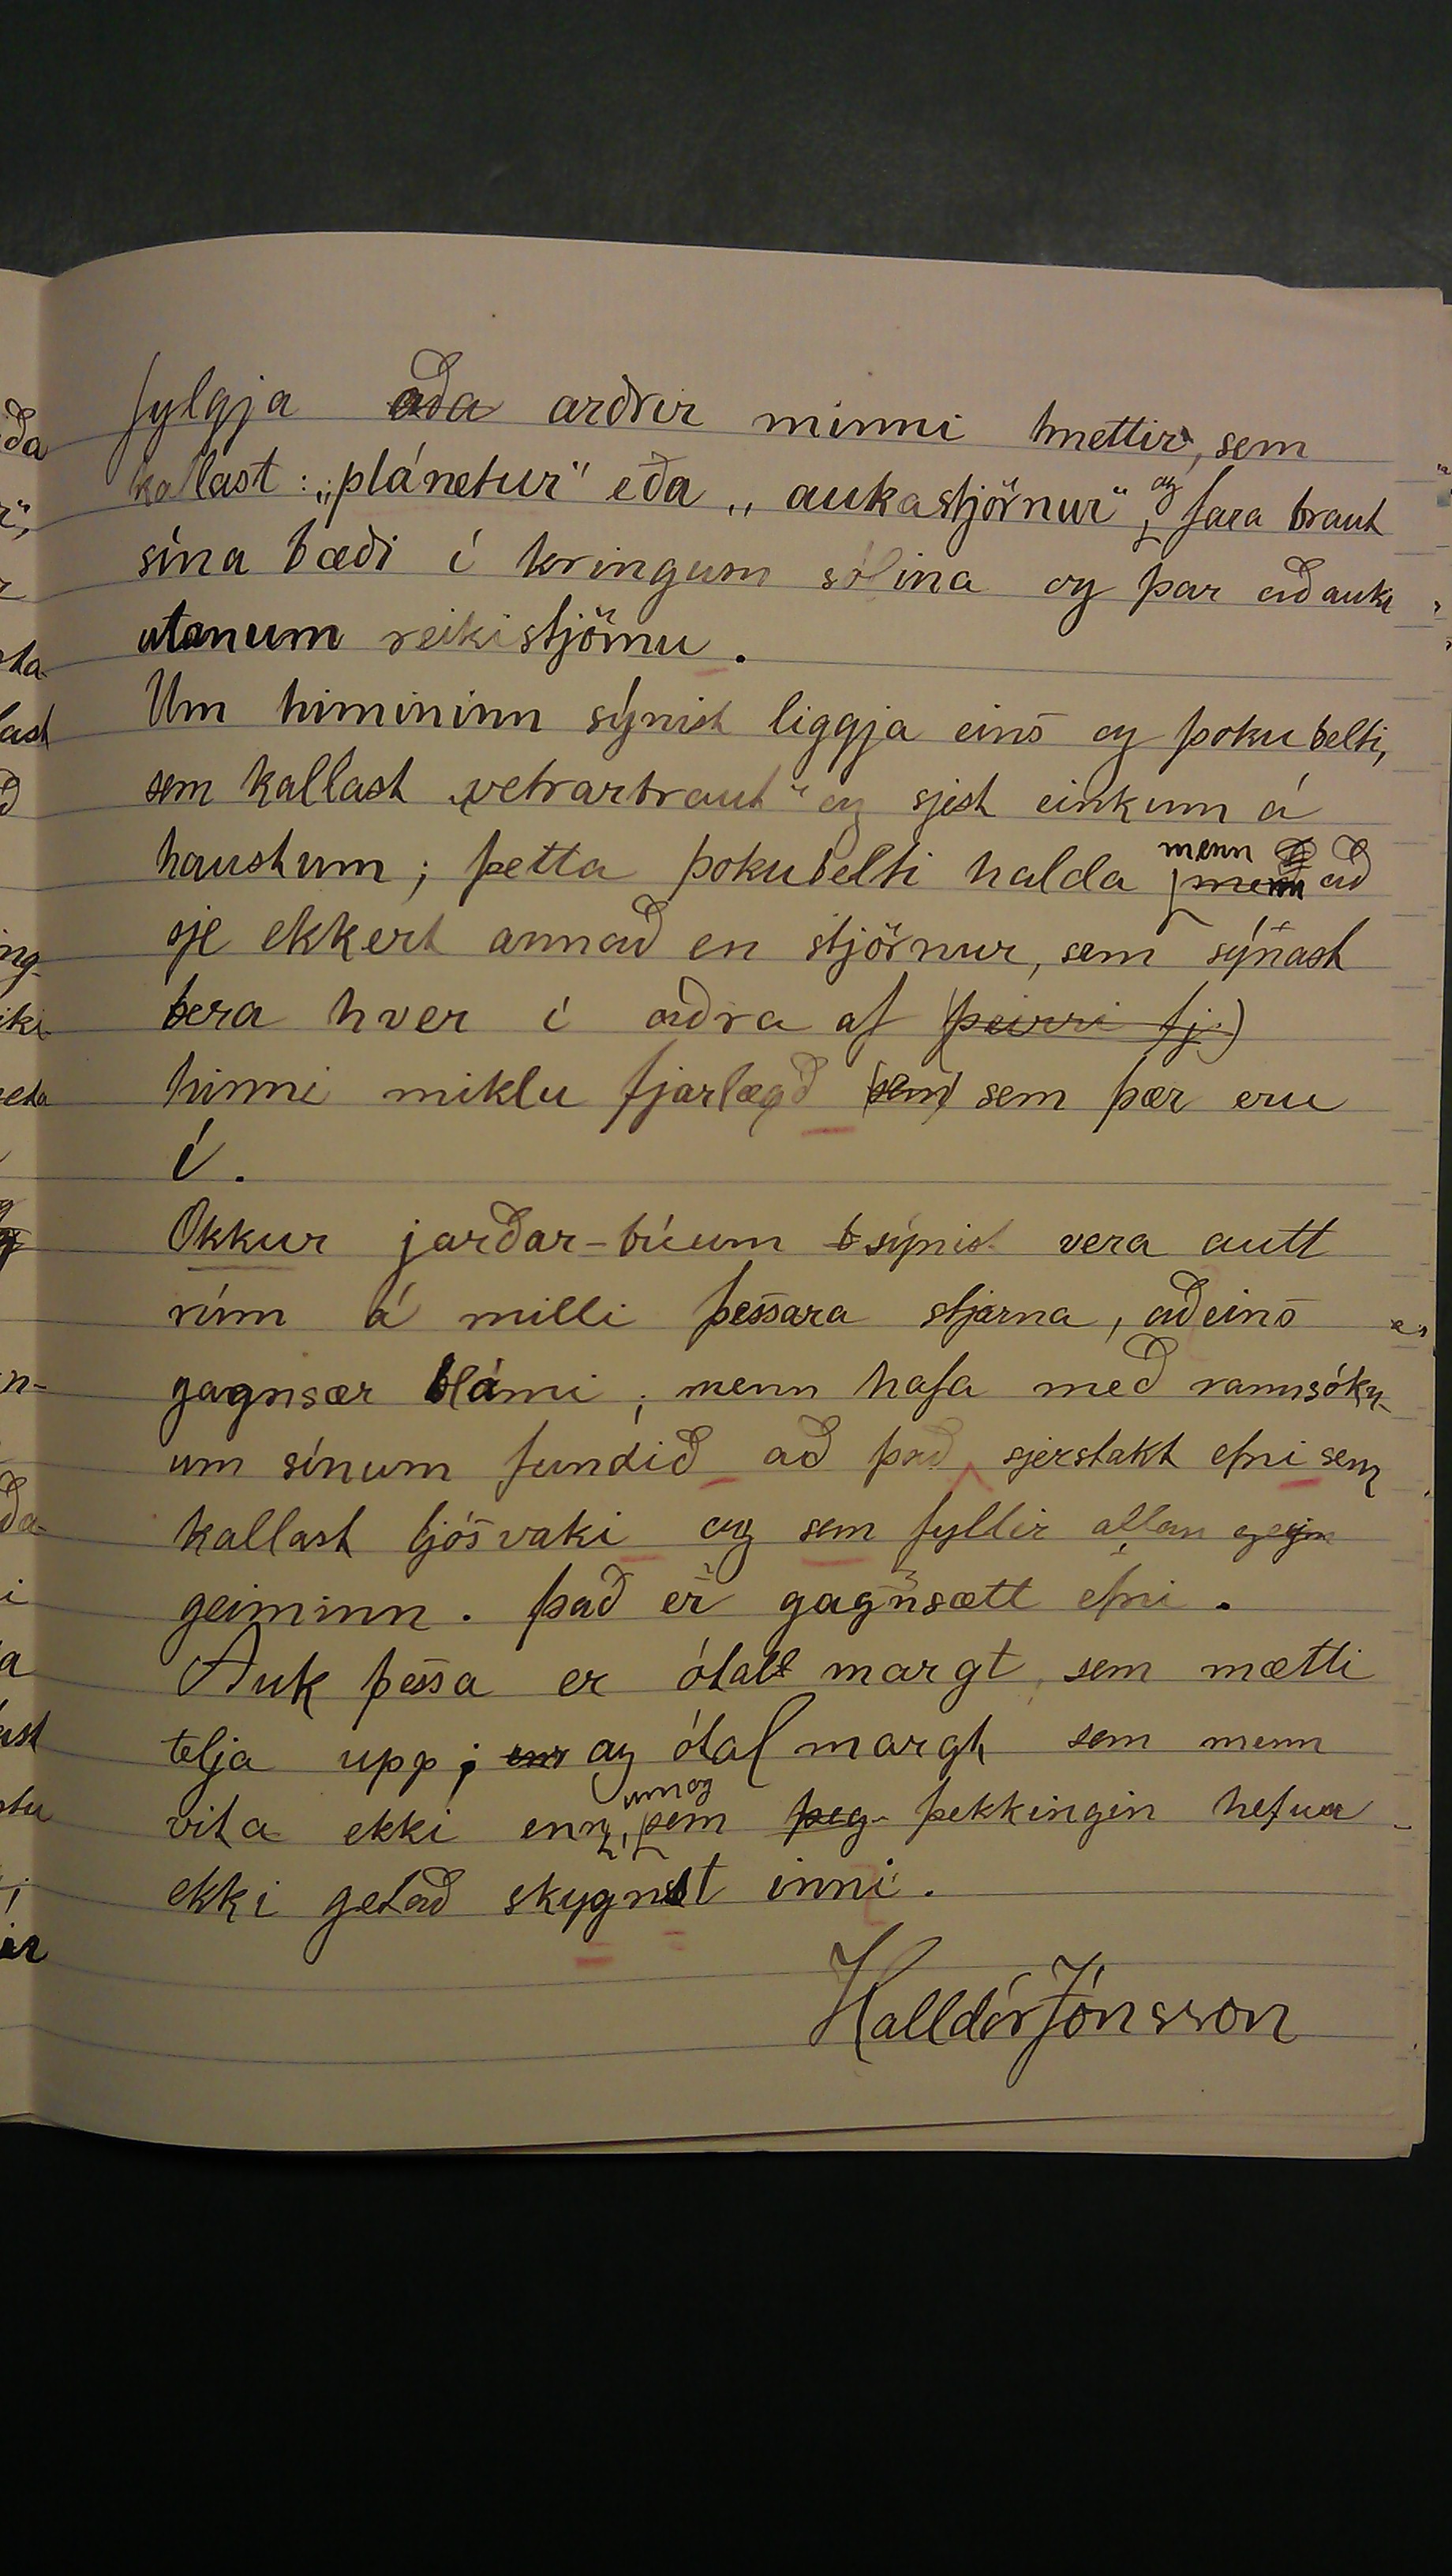 fylgja aða arðrir minni hnettir, sem
kallast: „plánetur“ eða „aukastjörnur“, og fara braut
sína bæði í kringum sólina og þar að auki
utanum reikistjörnu.
Um himininn sýnist liggja eins og þokubelti,
sem kallast „vetrarbraut“ og sjest einkum á
haustum; þetta þokubelti halda menn að
sje ekkert annað en stjörnur, sem sýnast
bera hver í aðra af (þeirri fj.)
hinni miklu fjarlægð (sem) sem þær eru
í.
Okkur jarðar-búum sýnist vera autt
rúm á milli þessara stjarna, aðeins
gagnsær blámi; menn hafa með rannsókn-
um sínum fundið að það sjerstakt efni sem
kallast ljósvaki og sem fyllir allan geym
geiminn. Það er gagnsætt efni.
Auk þessa er ótalt margt, sem mætti
telja upp; en og ótal margt sem menn
vita ekki enn, um og sem þeg- þekkingin hefur
ekki getað skygnst inni.
Halldór Jónsson